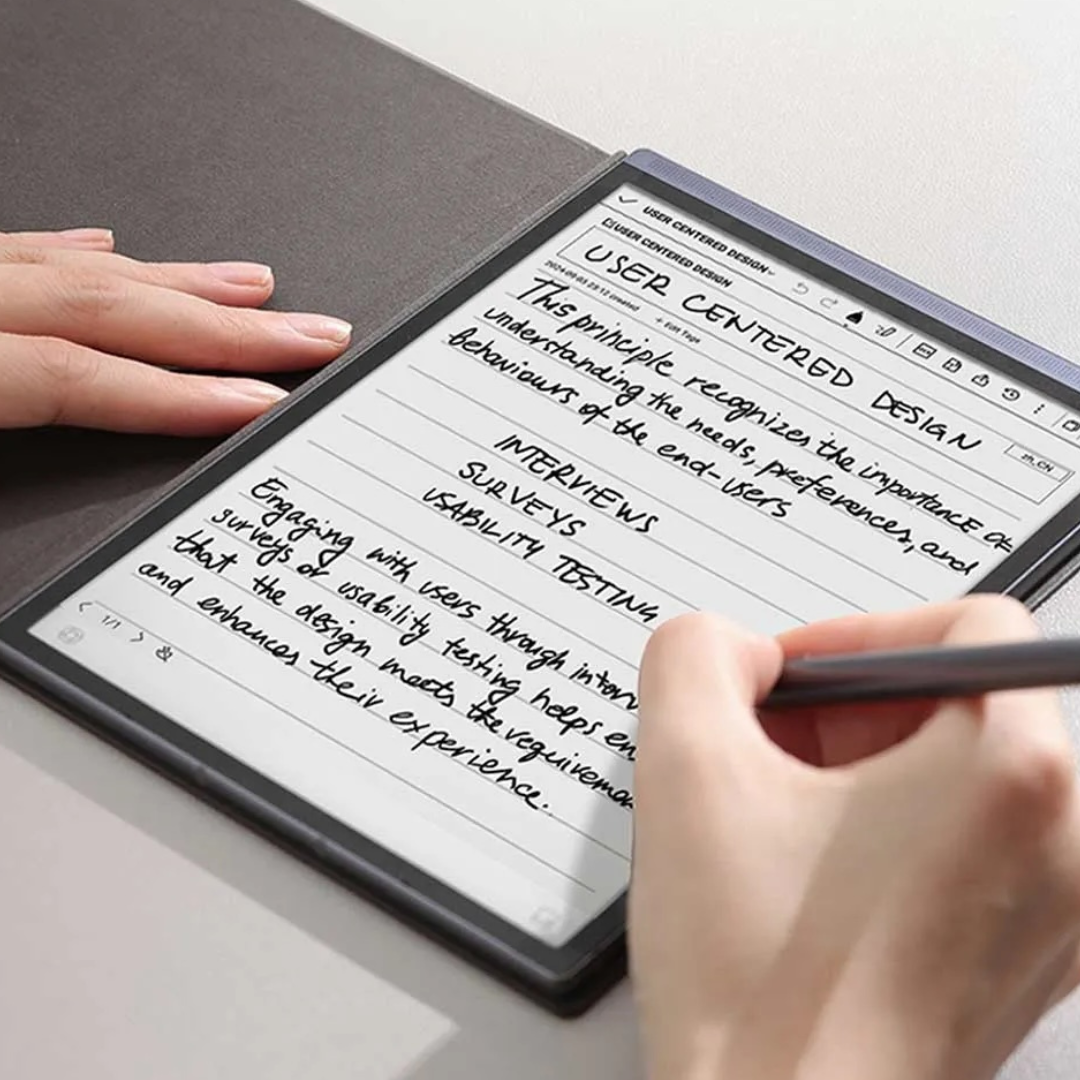 USER CENTERED DESIGN
USER CENTERED DESIGN
USER CENTERED DESIGN
zh_CN
created + Edit Tags
This principle recognizes the importance of
understanding the needs, preferences, and
behaviours of the end-users
INTERVIEWS
SURVEYS
USABILITY TESTING
Engaging with users through
surveys or usability testing helps
that the design meets the
and enhances their experience.
1/1